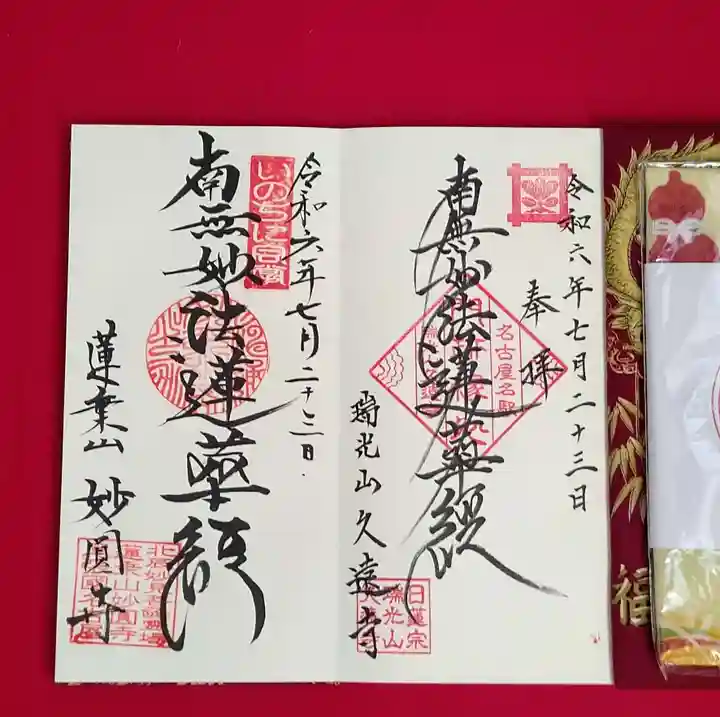 令和六年七月二十三日
奉拝
南無妙法蓮華經
名古屋名駅
瑞光山久遠寺
日蓮宗
瑞光山
令和六年七月二十三日
いのちに合掌
南無妙法蓮華經
蓮葉山妙圓寺
蓮葉山妙圓寺
福